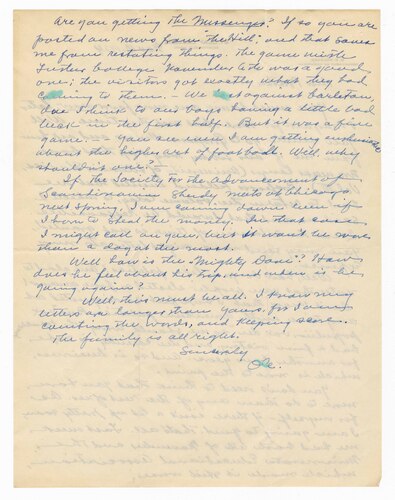 Are you getting the Messenger? If so you are
posted on news from "the Hill", and that saves
me from restating things. The game with
Luther College November 6th was a grand
one; the visitors got exactly what they had
coming to them. We lost against Carleton,
due I think to our boys having a little bad
luck in the first half. But it was a fine
game. - You see even I am getting enthusiastic
about the higher art of football. Well, why
shouldn't one?
If the Society for the Advancement of
Scandinavian Study meets at Chicago
next Spring, I am coming down even if
I have to steal the money. In that case
I might call on you, but it won't be more
than a day at the most.
Well how is the "Mighty Dane"? How
does he feel about his trip, and when is he
going again?
Well, this must be all. I know my
letters are longer than yours, for I am
counting the words, and keeping score.
The family is all right.
Sincerely
Ole.